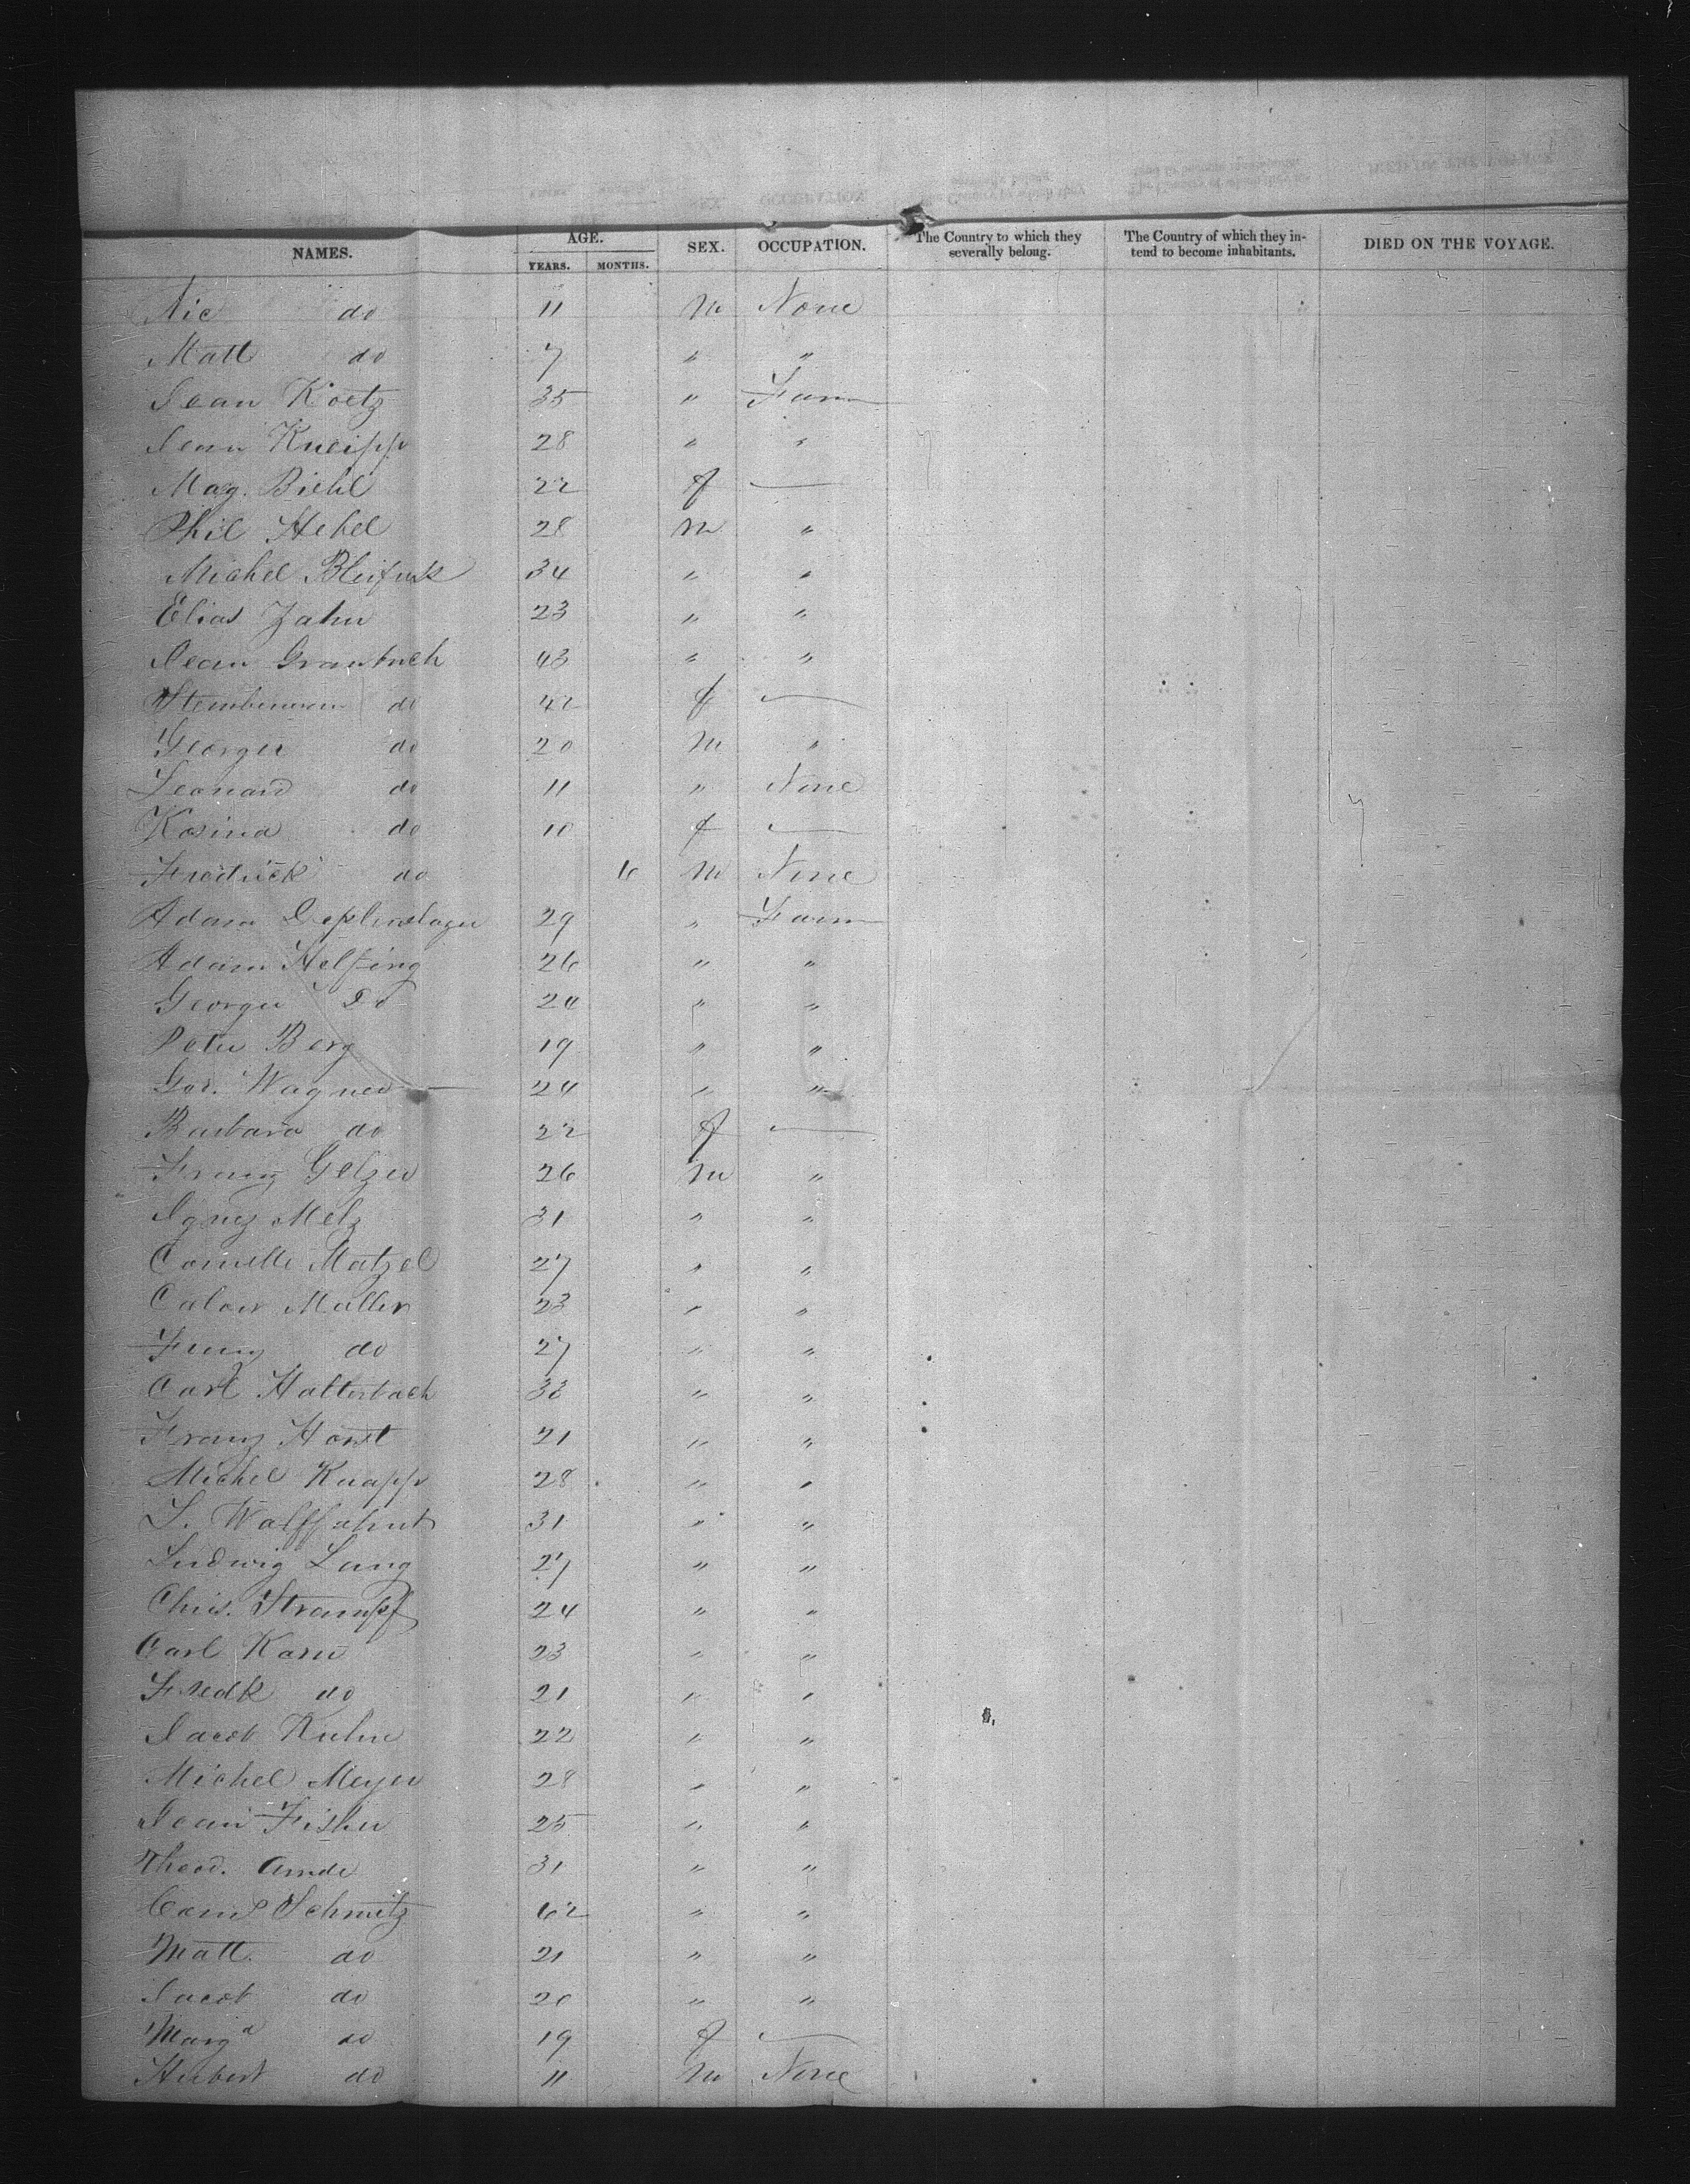 NAMES. AGE. YEARS. MONTHS. SEX. OCCUPATION. The Country to which they severally belong. The Country of which they intend to become inhabitants. DIED ON THE VOYAGE.
Nic do 11 m None
Matt do 7 " "
Jean Koetz 35 " Farm
Jean Kneipp 28 " "
Mag. Biehl 22 f —
Phil Hebel 28 m "
Michel Bleifuss 34 " "
Elias Zahn 23 " "
Jean 43 " "
do 42 f —
George do 20 m "
Leonard do 11 " None
Rosina do 10 f —
Fredrick do 6 m None
Adam 29 " Farm
Adam Helfing 26 " "
George Do 24 " "
Peter Berg 19 " "
Geo. Wagner 24 " "
Barbara do 22 f —
Franz Gelzer 26 m "
Ignez Metz 31 " "
Matzel 27 " "
23 " "
Franz do 27 " "
Carl Halterbach 33 " "
Franz Horst 21 " "
Michel Knapp 28 " "
L. 31 " "
Ludwig Lang 27 " "
Chris. Strampf 24 " "
Carl Karn 23 " "
Fredk do 21 " "
Jacob Kuhn 22 " "
Michel Meyer 28 " "
Jean Fisher 25 " "
Theod. Arnde 31 " "
Schmitz 62 " "
Matt. do 21 " "
Jacob do 20 " "
Marg<sup>a</sup> do 19 f —
Hubert do 11 m None